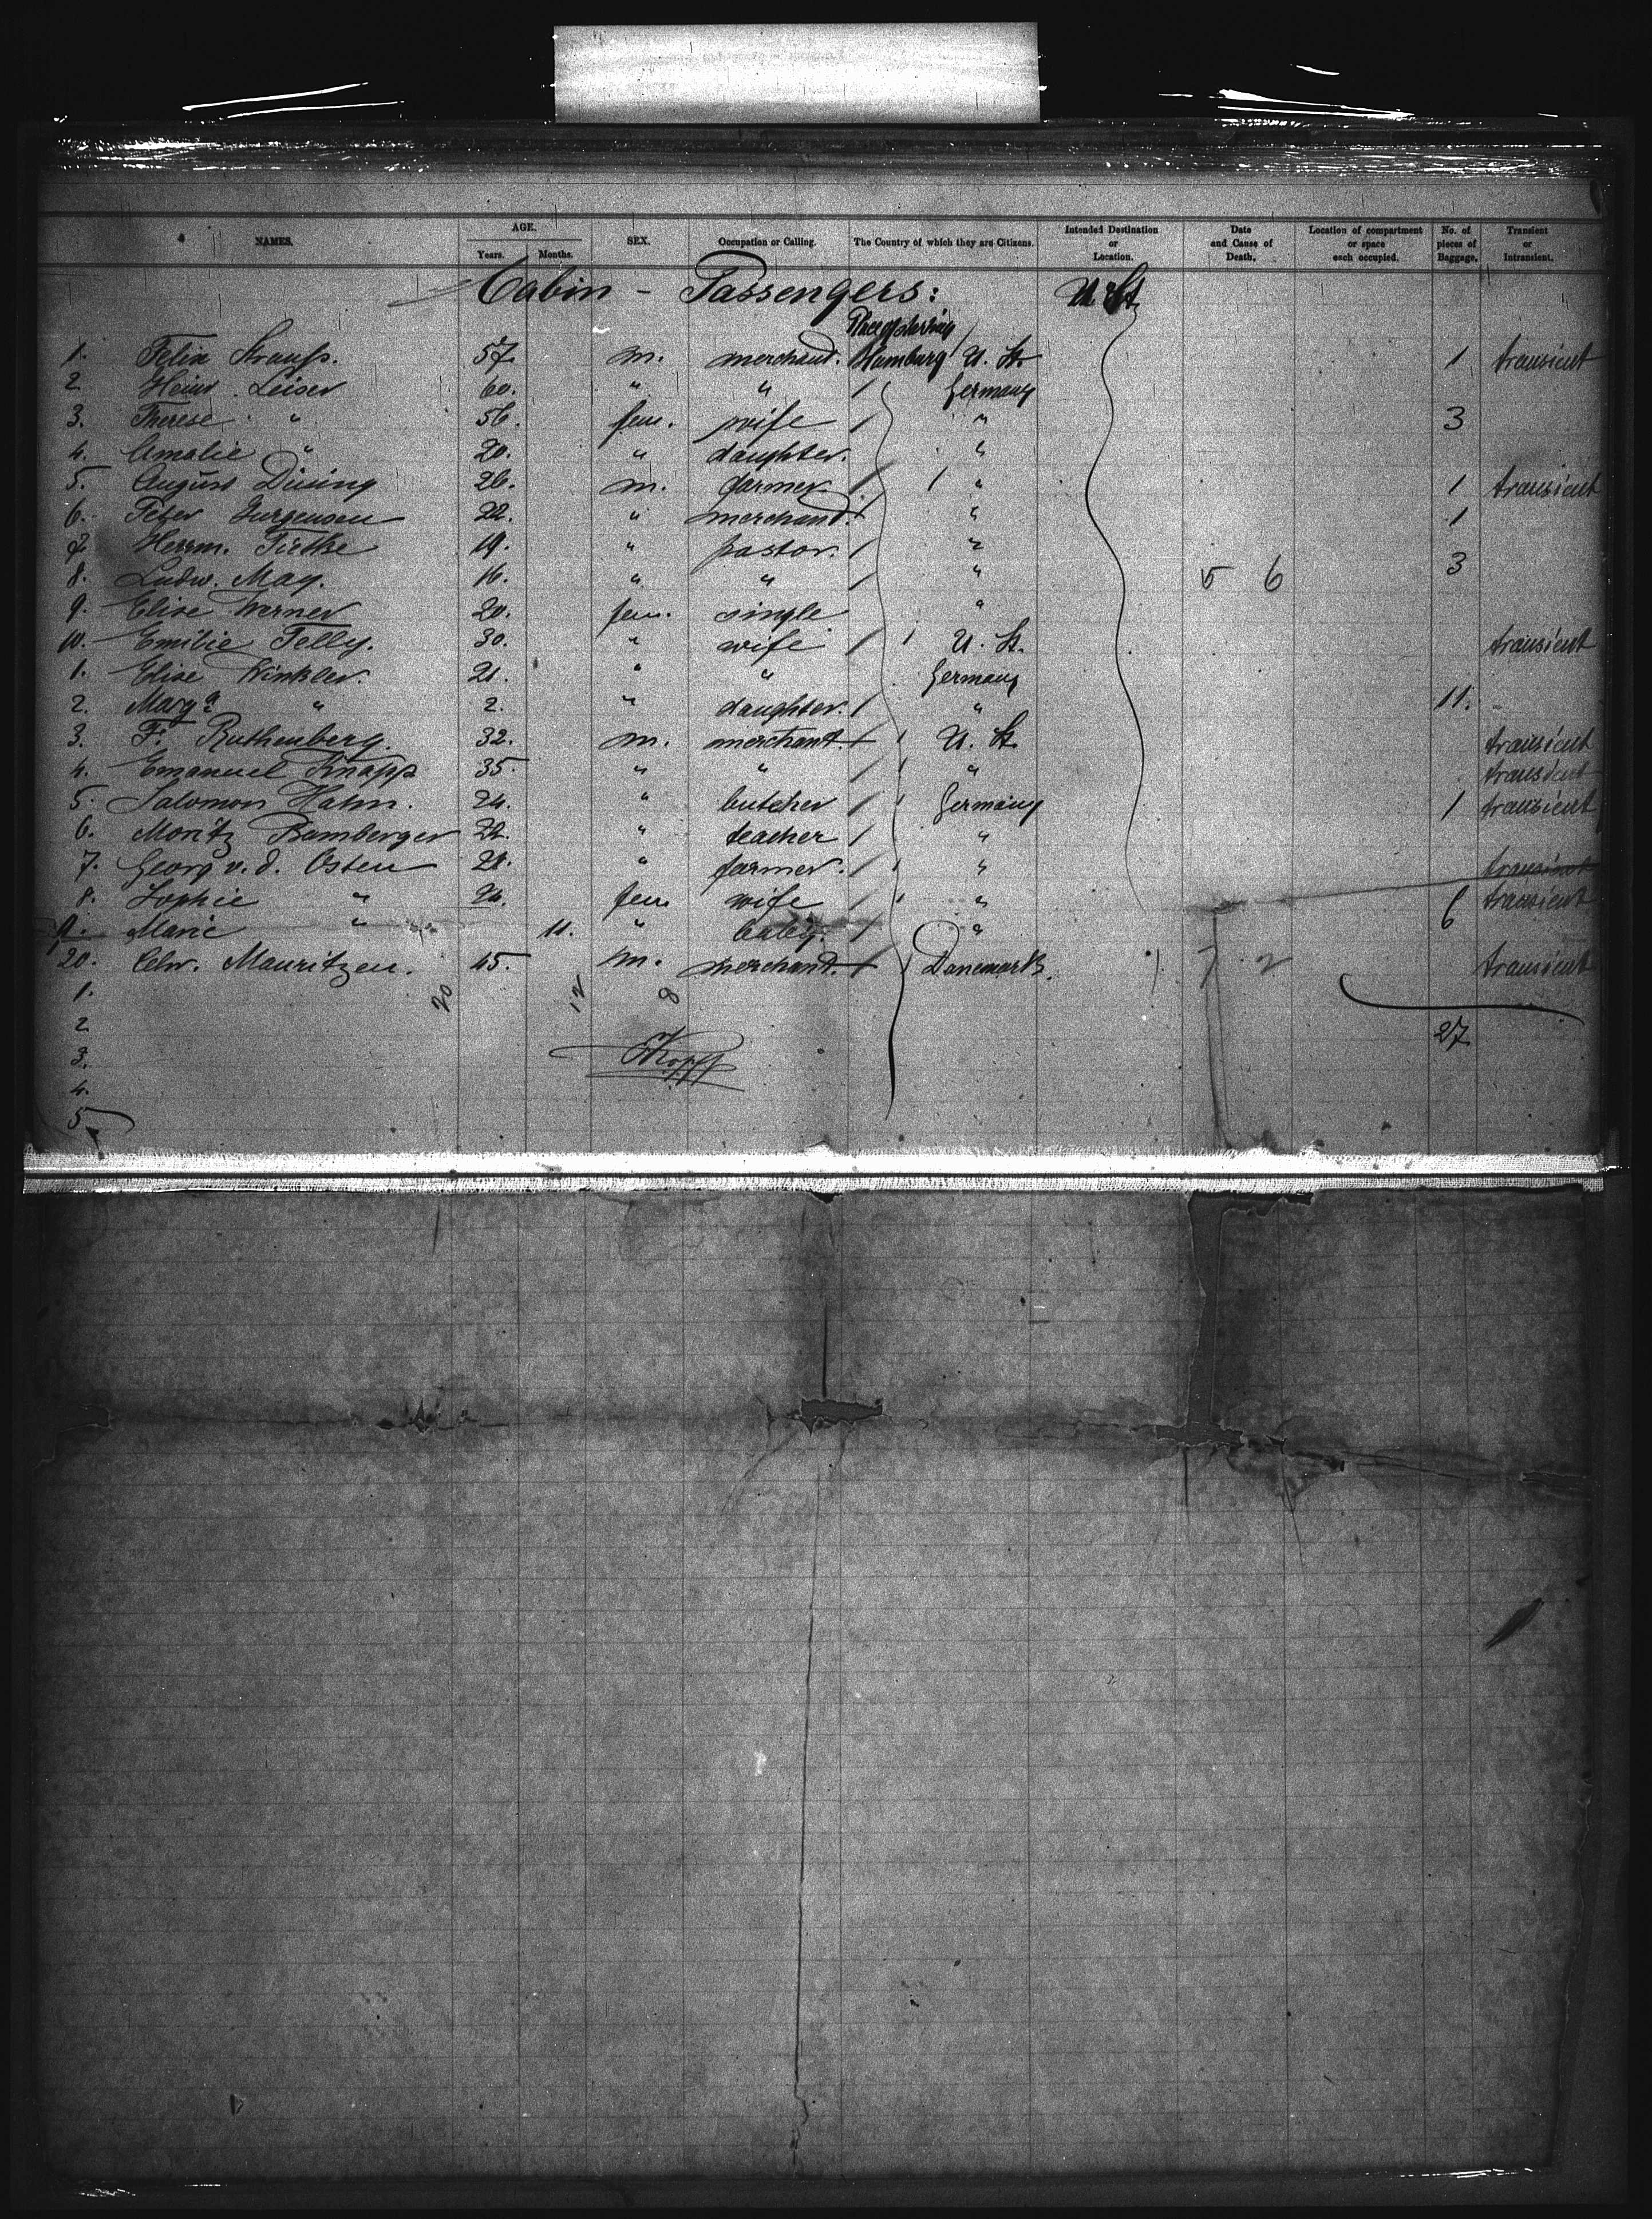 NAMES. AGE. Years. Months. SEX. Occupation or Calling. The Country of which they are Citizens. Intended Destination or Location. Date and Cause of Death. Location of compartment or space each occupied. No. of pieces of Baggage. Transient or Intransient.
Cabin - Passengers: U. St.
1. Felix Strauss. 57 m. merchand. Hamburg U. St. 1 transient
2 Heinr. Leiser 60. " " Germany
3. Therese " 56. fem. wife " 3
4. Amalie " 20. " daughter. "
5. August Düsing 26. m. farmer. " 1 transient
6. Peter Jurgensen 22. " merchand. " 1
7. Herrm. Tietke 19. " pastor. "
8. Ludw. May. 16. " " " 5 6 3
9. Elise Werner 20. fem. single "
10. Emilie Felly. 30. " wife U. St. transient
1. Elise Winkler. 21. " " Germany
2. Marga " 2. " daughter. " 11.
3. F. Ruthenberg. 32. m. merchant U. St. transient
4. Emanuel Knapp 35. " " " transient
5. Salomon Hahn. 24. " butcher Germany 1 transient
6. Moritz Bamberger 22. " teacher "
7. Georg v. d. Osten 28. " farmer. " transient
8. Sophie " 24. fem wife " 6 transient
9. Marie " 11. " baby. "
20. Mauritzen. 45. m. merchand. Danemark. 7 2 transient
1. 20 12 8
2 27
3.
4.
5